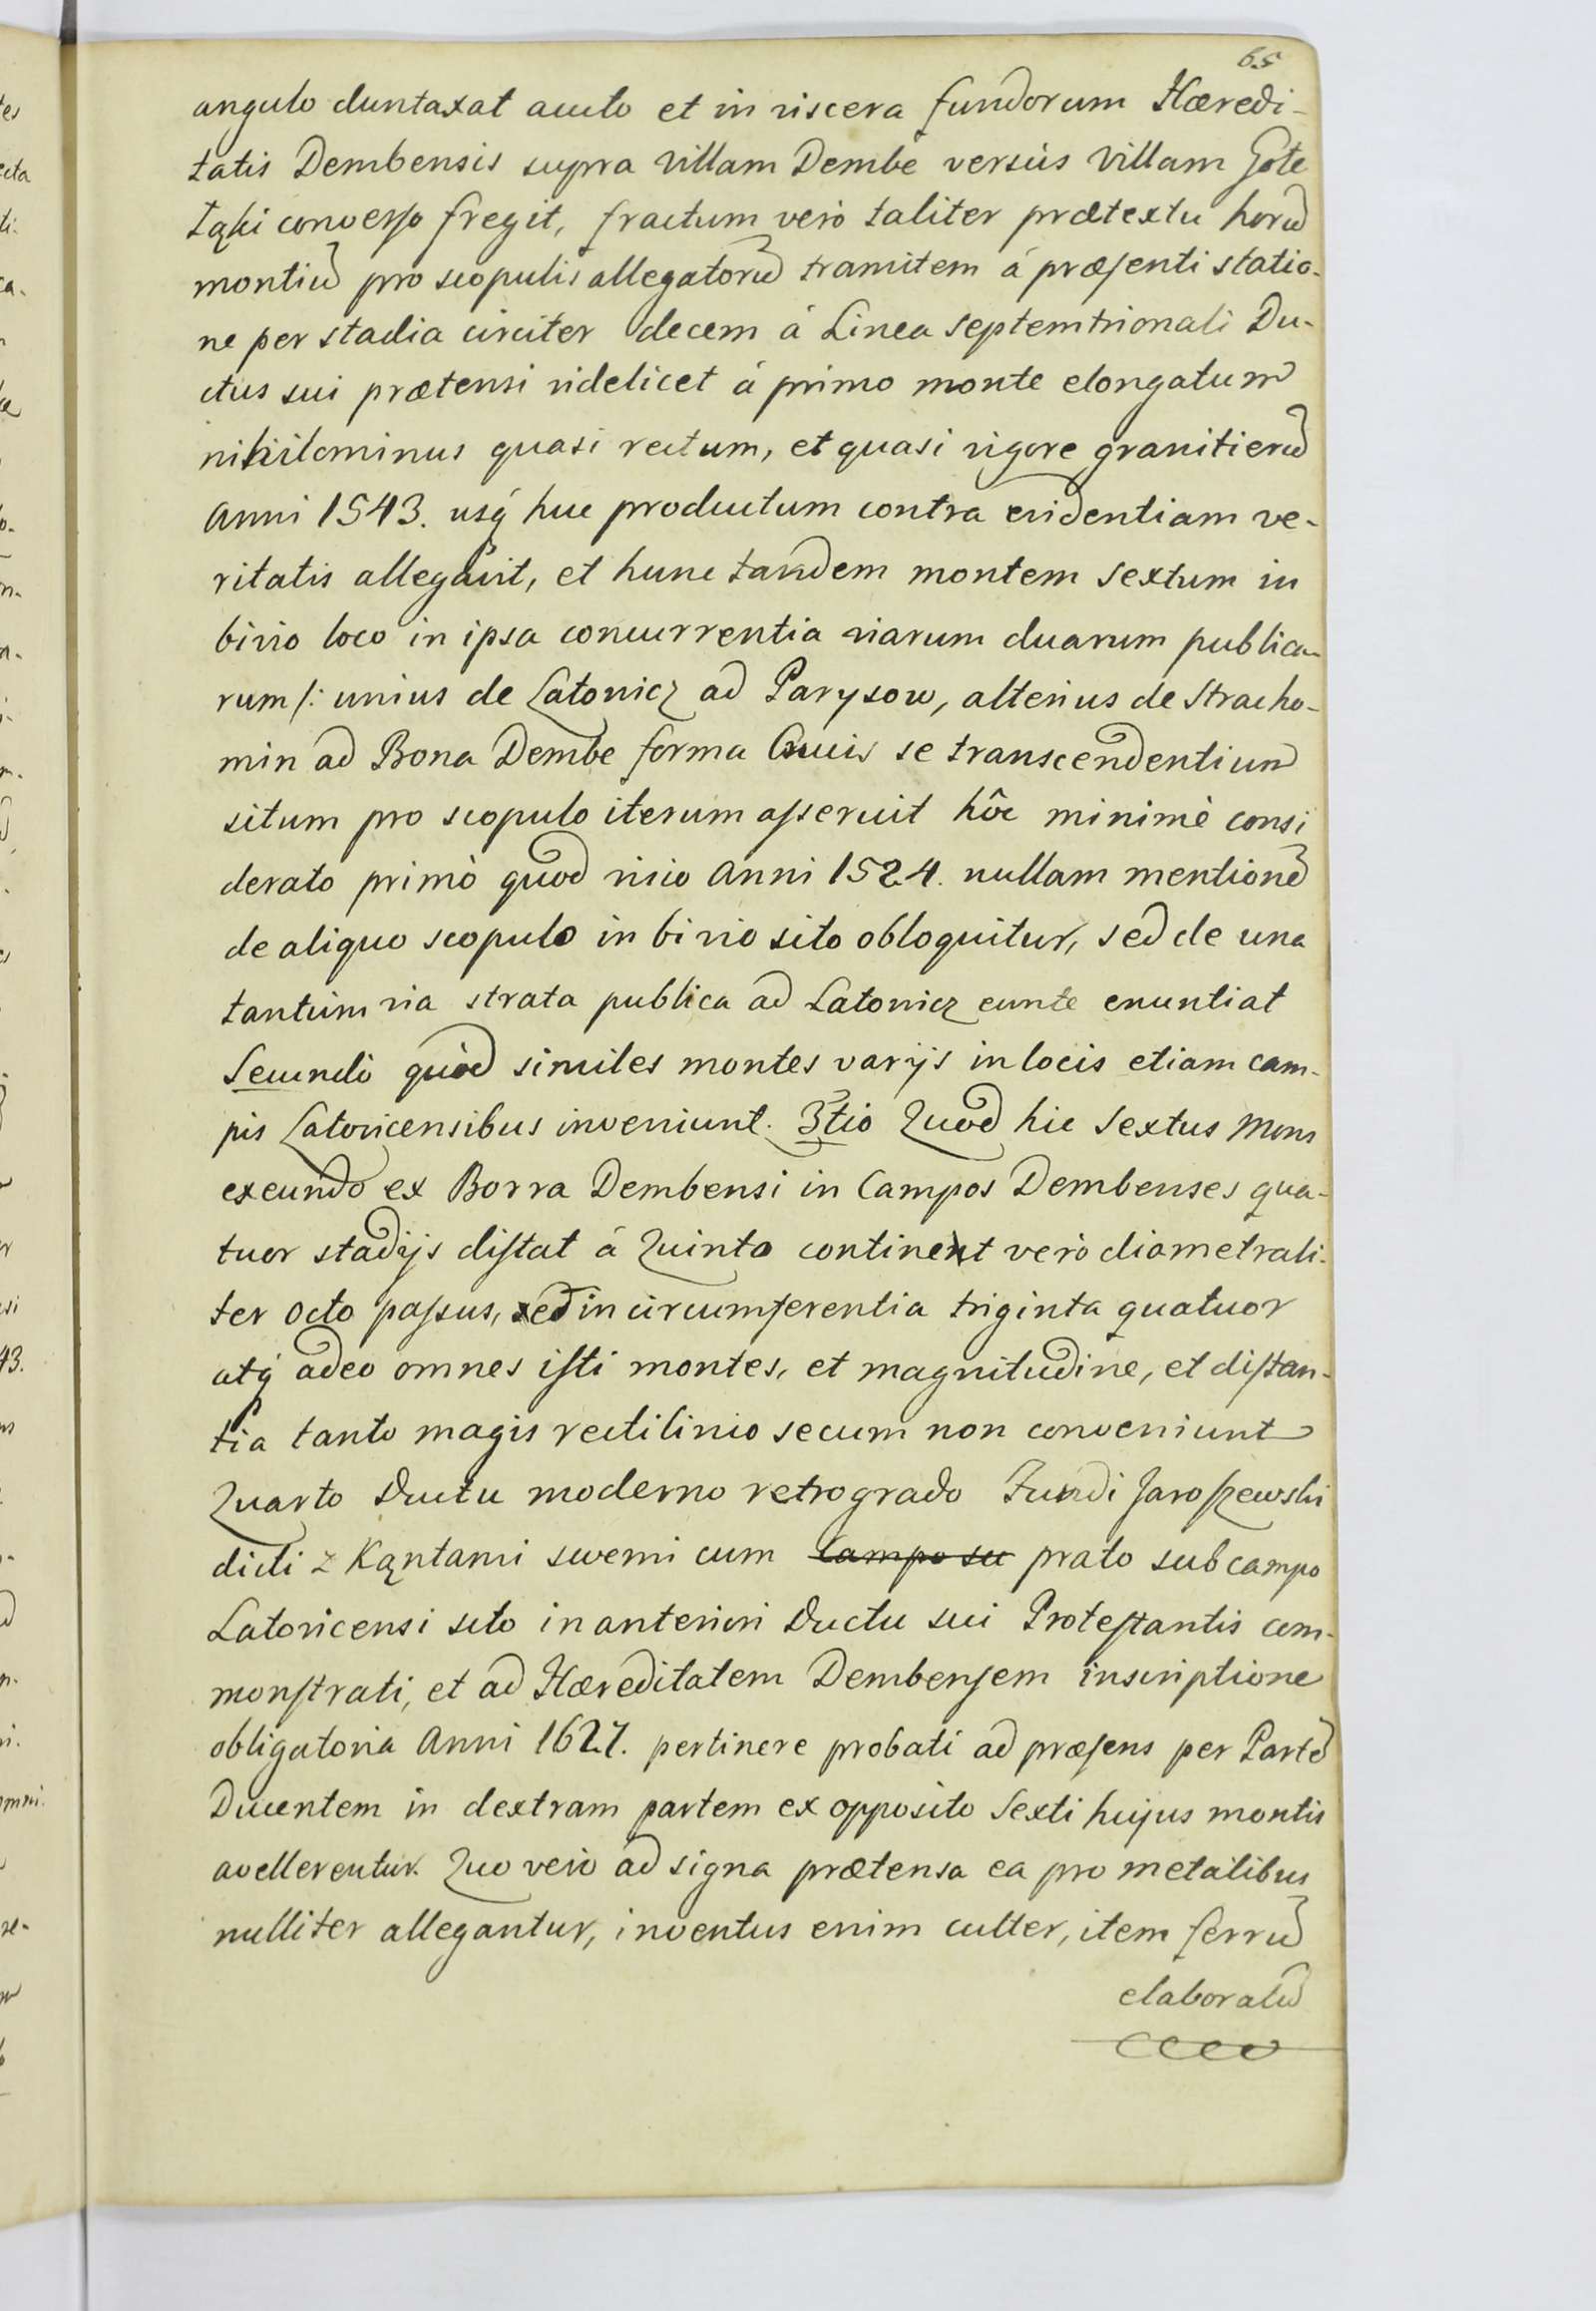 65
angulo duntaxat acuto et in viscera fundorum Hæredi-
tatis Dembensis supra Villam Dembe versùs Villam Gołe
Łąki converso fregit, fractum verò taliter prætextu horu͠
montiu͠ pro scopulis allegatoru͠ tramitem á præsenti statio-
ne per stadia circiter decem á Linea septemtrionali Du-
ctus sui prætensi videlicet á primo monte elongatum
nihilominus quasi rectum, et quasi rigore granitieru͠
Anni 1543. usq́ huc productum contra evidentiam ve-
ritatis allegavit, et hunc tandem montem sextum in
bivio loco in ipsa concurrentia viarum duarum publica-
rum /: unius de Latovicz ad Parysow, alterius de Stracho-
min ad Bona Dembe forma Crucis se transcendentium
situm pro scopulo iterum asseruit hôc minimè consi
derato primò quod visio Anni 1524. nullam mentione͠
de aliquo scopulo in bivio sito obloquitur, sed de una
tantùm via strata publica ad Latovicz eunte enuntiat
Secundò quòd similes montes varijs in locis etiam cam-
pis Latovicensibus inveniunt. 3tio Quod hic Sextus Mons
exeundo ex Borra Dembensi in Campos Dembenses qua-
tuor stadijs distat á Quinto continet verò diametrali-
ter octo passus, sed in circumferentia triginta quatuor
atq́ adeo omnes isti montes, et magnitudine, et distan-
tia tanto magis rectilinio secum non conveniunt
Quarto Ductu moderno retrogrado Fundi Jaroszewski
dicti z Kąntami swemi cum Campo su prato sub campo
Latovicensi sito in anteriori Ductu sui Protestantis com-
monstrati, et ad Hæreditatem Dembensem inscriptione
obligatoria Anni 1627. pertinere probati ad præsens per Parte͠
Ducentem in dextram partem ex opposito Sexti hujus montis
avellerentur. Quo verò ad signa prætensa ea pro metalibus
nulliter allegantur, inventus enim culter, item ferru͠
elaboratu͠